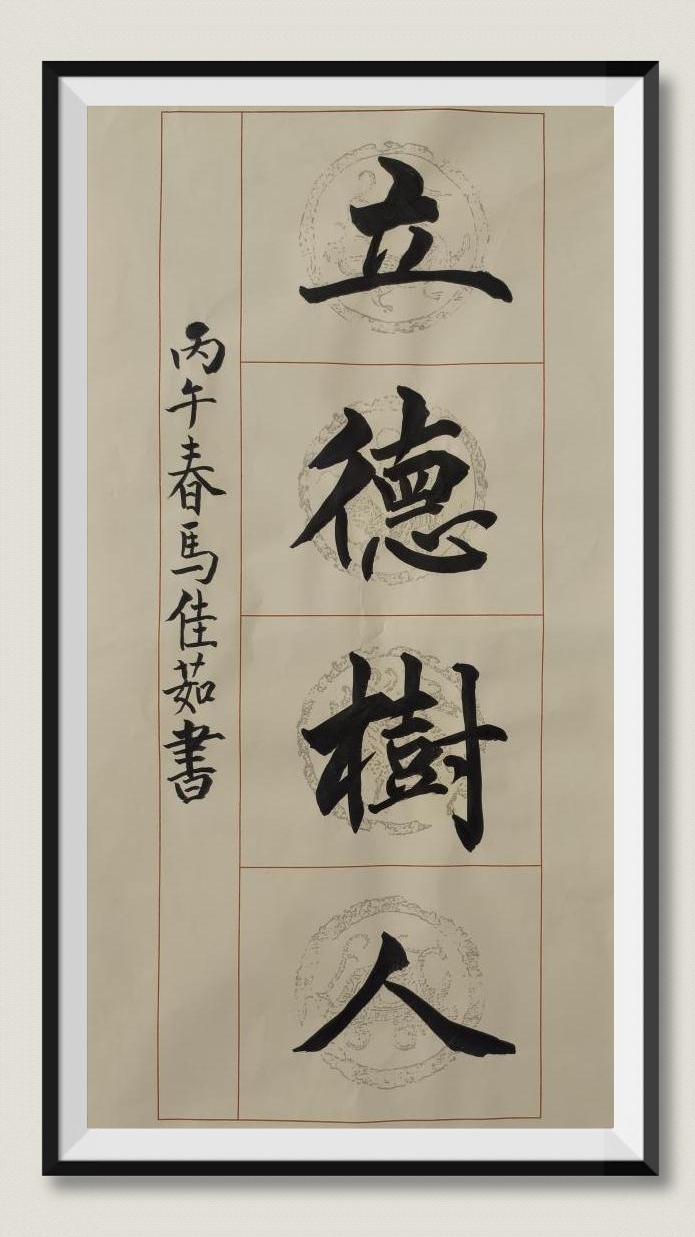 立德樹人
丙午春馬佳茹書